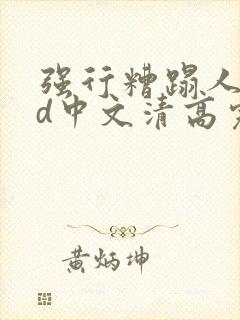 强行糟蹋人
d中文清高完
黄炳坤